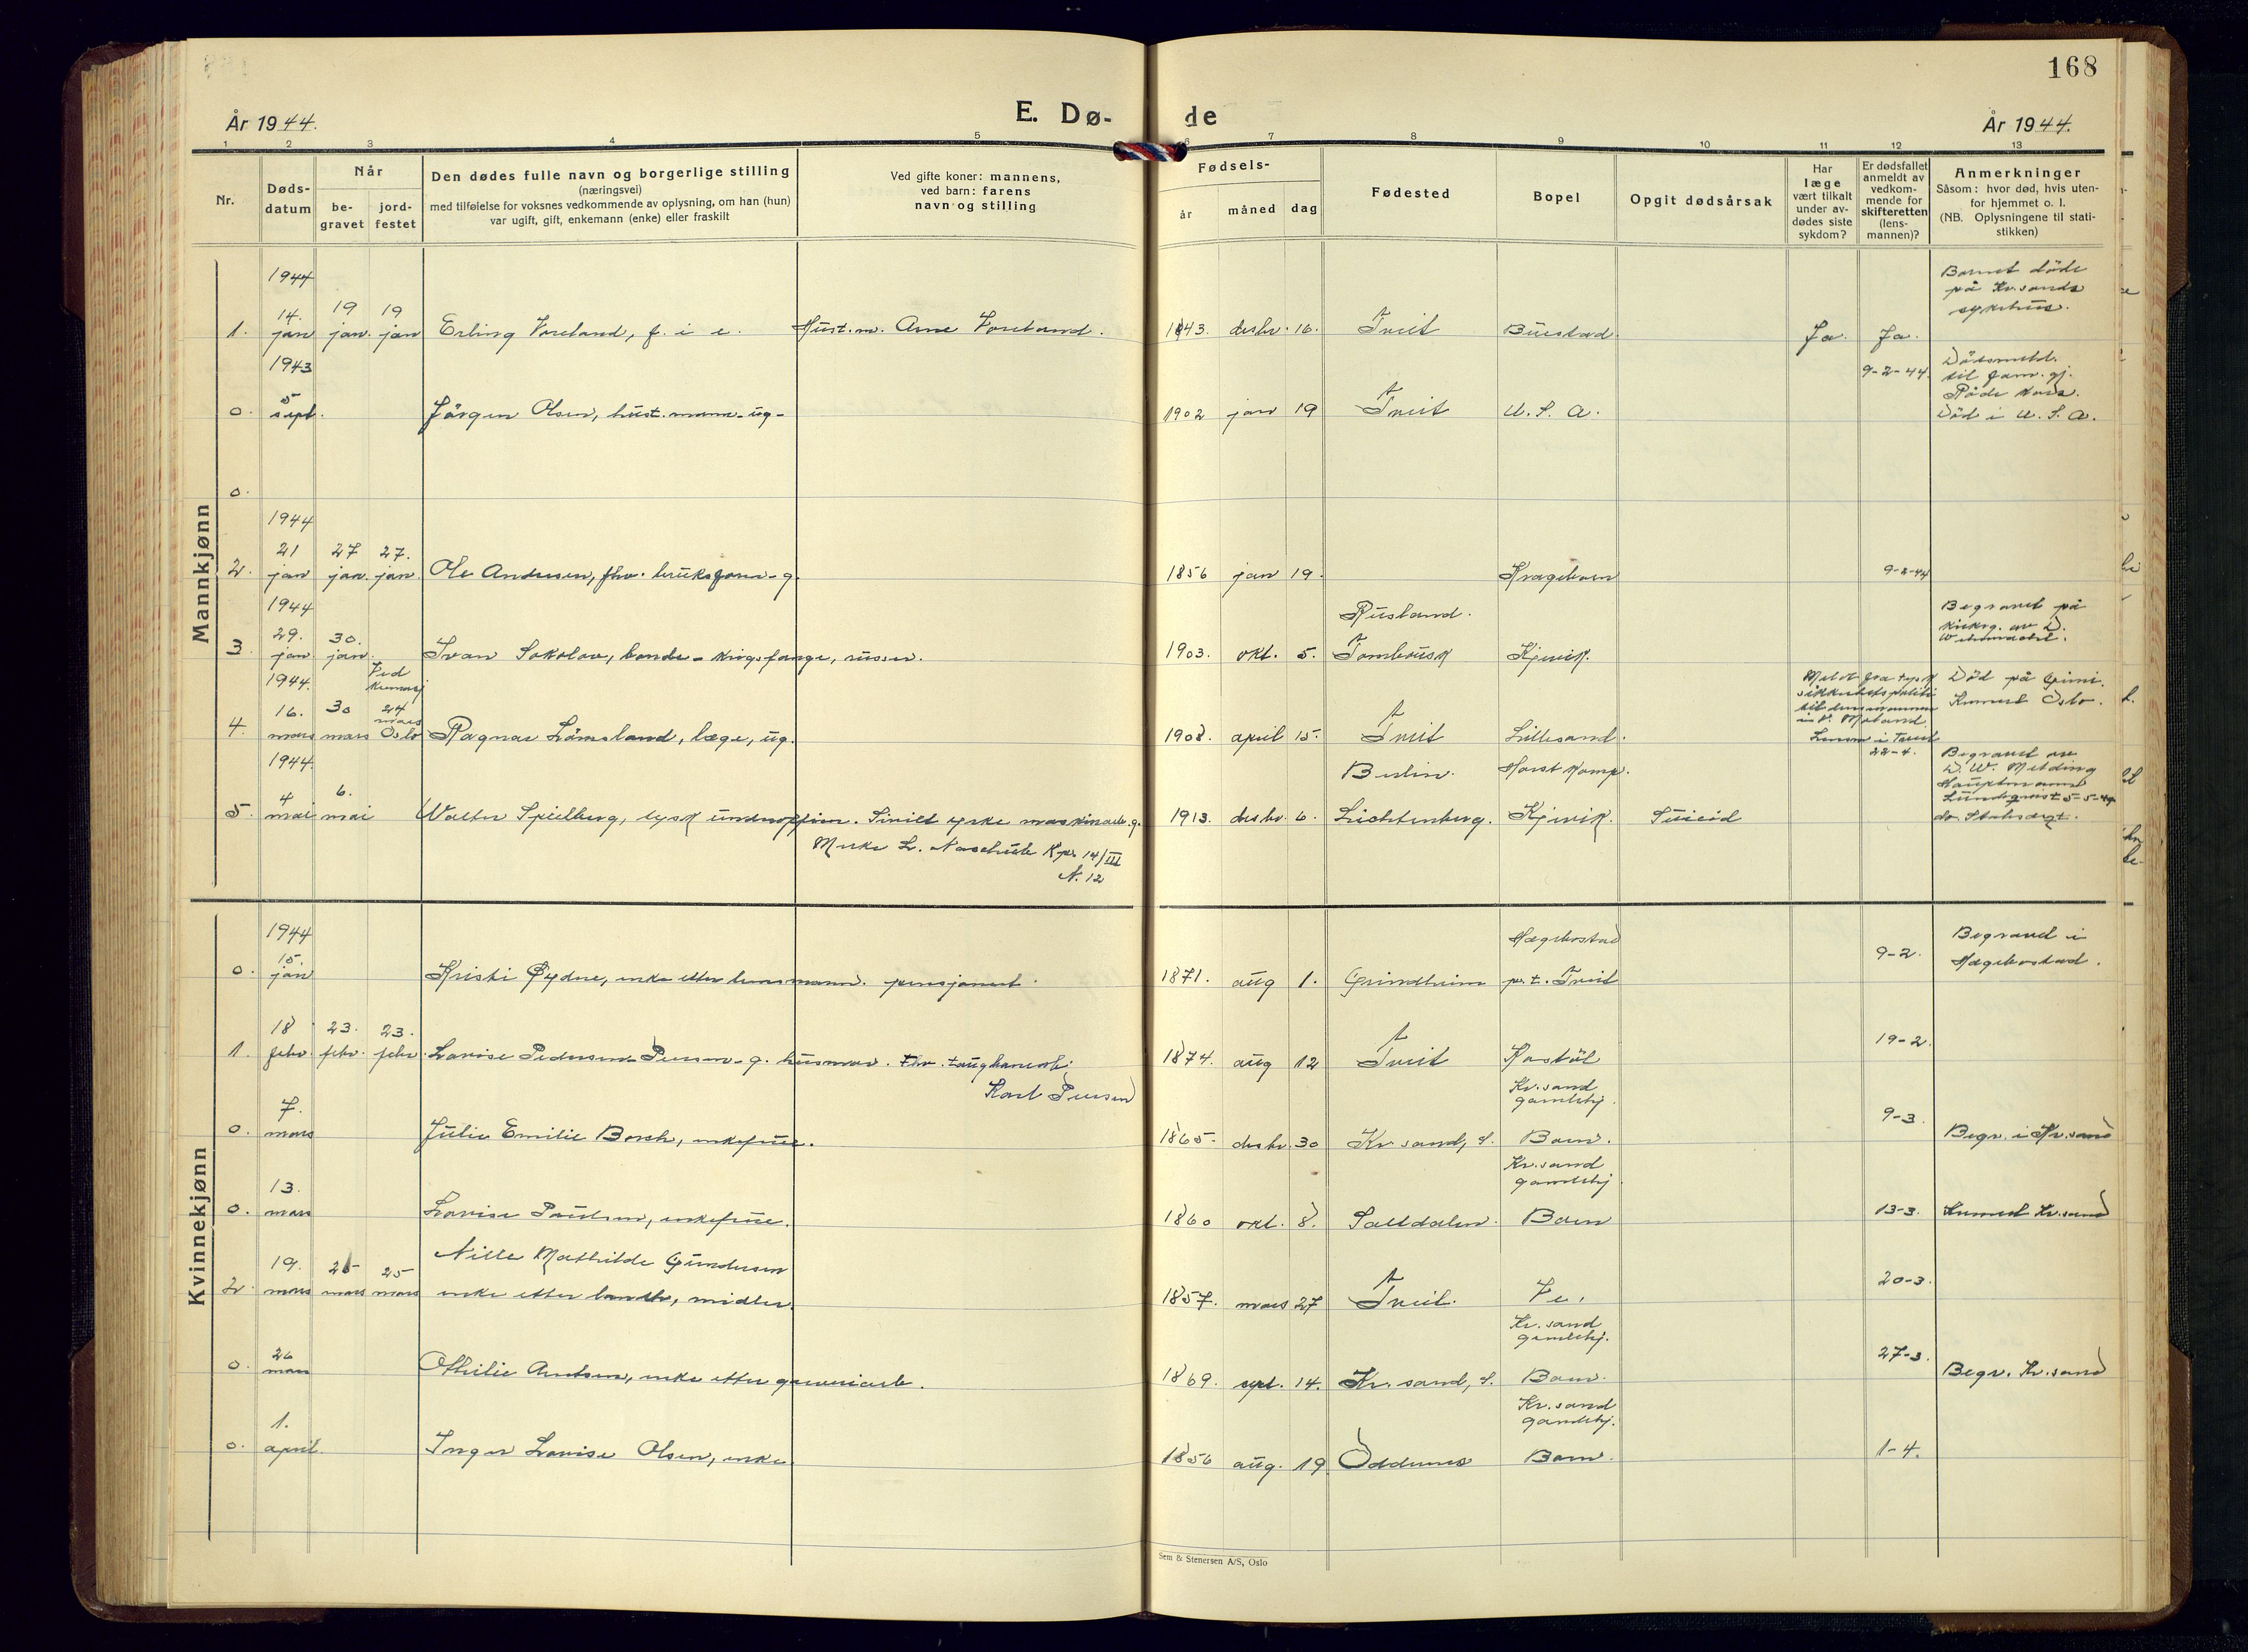 168
År 1944.
E. Dø-
de
År 1944.
1 2 3 4 5 6 7 8 9 10 11 12 13
Nr.
Døds-
datum
Når
be-
gravet
jord-
festet
Den dødes fulle navn og borgerlige stilling
(næringsvei)
med tilføielse for voksnes vedkommende av oplysning, om han (hun)
var ugift, gift, enkemann (enke) eller fraskilt
Ved gifte koner: mannens,
ved barn: farens
navn og stilling
Fødsels-
år måned dag
Fødested
Bopel
Opgit dødsårsak
Har
læge
vært tilkalt
under av-
dødes siste
sykdom?
Er dødsfallet
anmeldt av
vedkom-
mende for
skifteretten
(lens-
mannen)?
Anmerkninger
Såsom: hvor død, hvis uten-
for hjemmet o. l.
(NB. Oplysningene til stati-
stikken)
Mannkjønn
1944
14. 19 19
1. jan jan. jan Erling Voreland, f. i e. Hust.m. Arne Voreland. 1943. desbr. 16. Tveit Buestad. Ja. Ja.
Barnet døde
på Kr.sands
sykehus.
1943
5
0. sept. Jörgen Olsen, hust. mann - ug - 1902 jan 19 Tveit U. S. A.
9-2-44
Dødsmeld.
til fam. gj.
Røde Kors.
Død i U. S. A.
0.
1944
21 27 27.
2. jan jan. jan. Ole Andersen, fhv. bruksform - g. 1856 jan 19. Krageboen 9-2-44
1944
29. 30.
3. jan jan. Ivan Sokolov, bonde - krigsfange, russer. 1903. okt. 5. Kjevik.
Rusland.
Begravet på
kirkeg. av D.
Wehrmacht.
1944.
Ved
16. 30 24
mars
4. mars mars Oslo Ragnar Lömsland, læge, ug. 1908. april 15. Tveit Lillesand.
Meldt fra tysk
sikkerhetspoliti
Lensm i Tveit
22-4.
Død på
Kremert Oslo.
1944.
4 6.
5. mai mai Walter Spielberg, tysk underoffiser. Sivilt yrke maskinarb. g. 1913. desbr. 6. Lichtenberg. Kjevik. Suicid
Berlin. Horst Komp.
Merke L. Naschub Kp. 14/III
N. 12
Begravet av
D. W. Melding
Hauptmann
5-5-44
Kvinnekjønn
1944
15.
0. jan Kristi Gydne, enke etter lensmann. pensjonert. 1871. aug 1. Grindheim p.t. Tveit 9-2.
Hægebostad
Begraved i
Hægebostad.
18 23. 23.
1. febr. febr. febr. Lovise Pedersen Iversen - g. husmor. Fhv. taughanearb. 1874. aug 12 Tveit 19-2.
Karl Iversen
7.
0. mars Julie Emilie Borch, enkefrue. 1865. desbr. 30 Kr.sand, S. Boen. 9-3. Begr. i Kr.sand
Kr.sand
gamlehj.
13.
0. mars Lovise Paulsen, enkefrue. 1860 okt. 8. Saltdalen. Boen 13-3. Kremert Kr.sand
Kr.sand
gamlehj.
19. 25 25
Nille Mathilde Gundersen
2. mars mars mars enke etter landbr., midler. 1857. mars 27 Tveit. Ve. 20-3.
26
0. mars Othilie Arntsen, enke etter garveriarb. 1869. sept. 14. Kr.sand, S. Boen. 27-3. Begr. Kr.sand
Kr.sand
gamlehj.
1.
0. april. Inger Lovise Olsen, enke 1856 aug. 19 Oddernes Boen. 1-4.
Kr.sand
gamlehj.
Sem & Stenersen A/S, Oslo